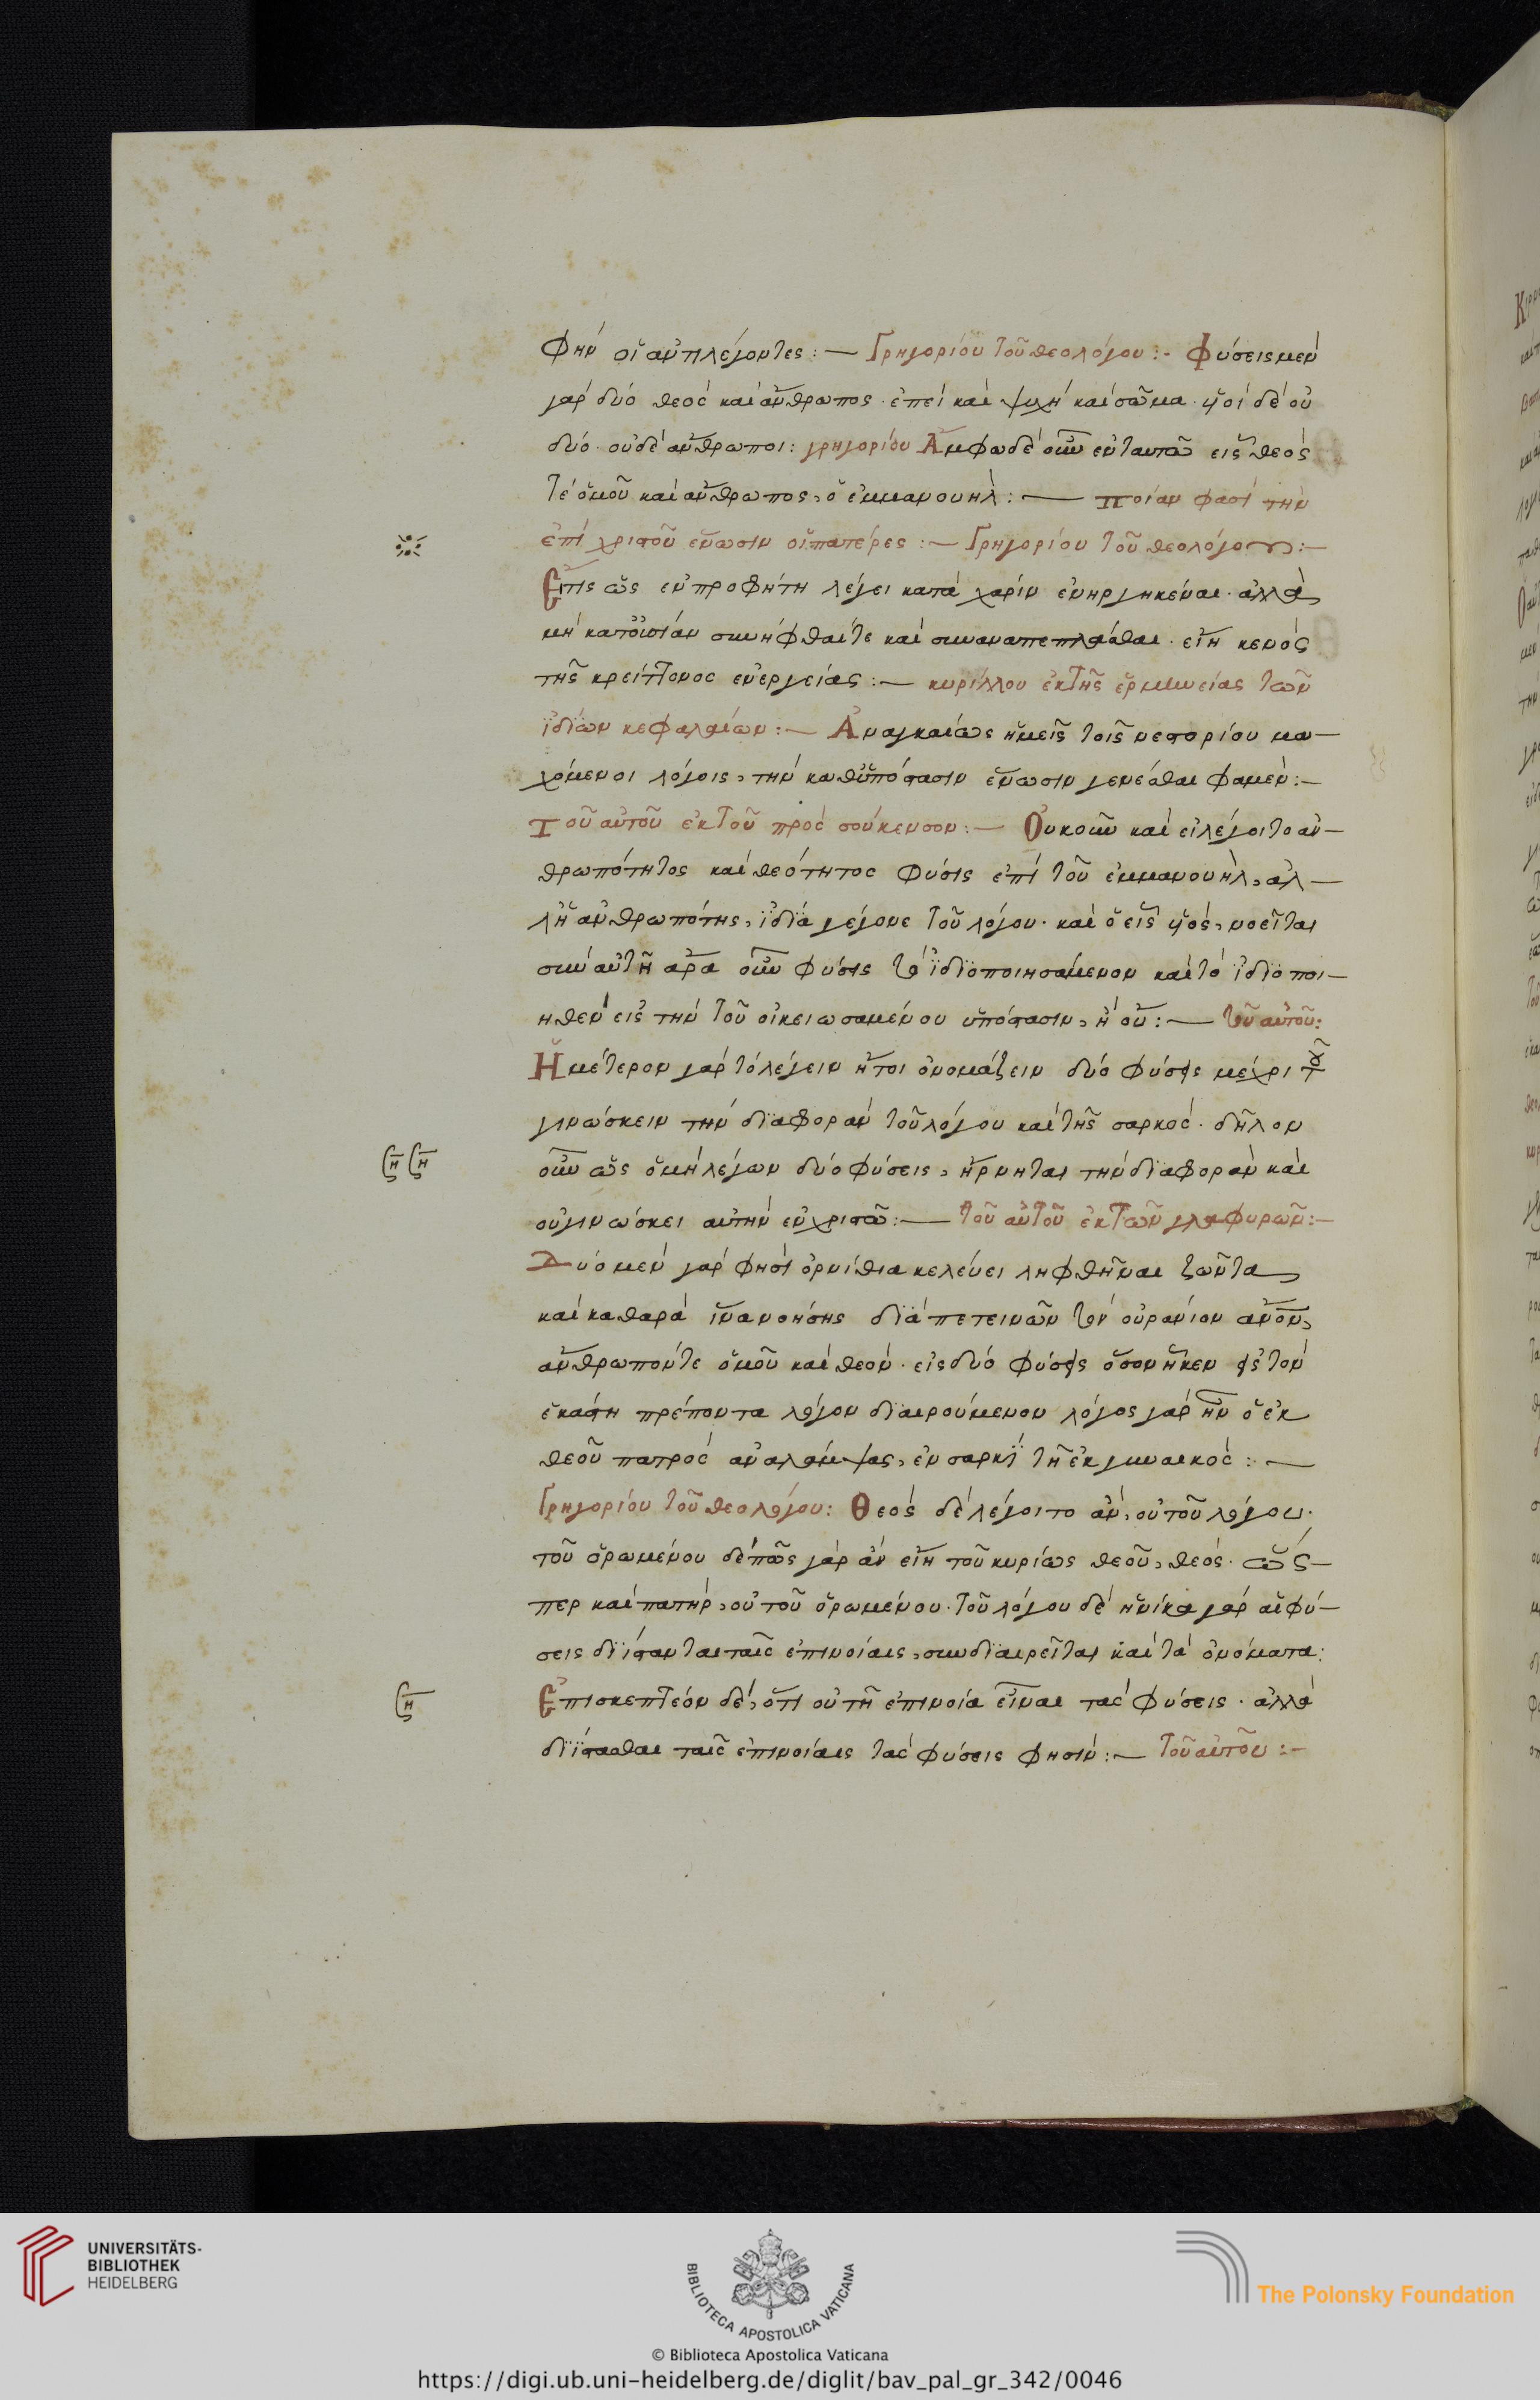 φὴν οἱ ἀντιλέγοντες :— Γρηγορίου τοῦ θεολόγου :- Φύσεις μὲν
γὰρ δύο θεὸς καὶ ἄνθρωπος · ἐπεὶ καὶ ψυχὴ καὶ σῶμα · υἱοὶ δὲ οὐ
δύο · οὐδὲ ἄνθρωποι : γρηγορίου Ἄμφω δὲ οὖν ἐν ταυτῶ εἷς θεός
τὲ ὁμοῦ καὶ ἄνθρωπος, ὁ ἐμμανουήλ :— ποίαν φασὶ τὴν
ἐπὶ χριστοῦ ἕνωσιν οἱ πατέρες :— Γρηγορίου τοῦ θεολόγου :—
Εἴ τις ὡς ἐν προφήτη λέγει κατὰ χάριν ἐνηργηκέναι · ἀλλὰ
μὴ κατ' οὐσίαν συνήφθαί τε καὶ συναναπεπλάσθαι · εἴη κενὸς
τῆς κρείττονος ἐνεργείας :— κυρίλλου ἐκ τῆς ἑρμηνείας τῶν
ἰδίων κεφαλαίων :— Ἀναγκαίως ἡμεῖς τοῖς νεστορίου μα—
χόμενοι λόγοις, τὴν καθ' ὑπόστασιν ἕνωσιν γενέσθαι φαμέν :—
Τοῦ αὐτοῦ ἐκ τοῦ πρὸς σούκενσον :— Οὐκοῦν καὶ εἰ λέγοιτο ἀν—
θρωπότητος καὶ θεότητος φύσις ἐπὶ τοῦ ἐμμανουὴλ, ἀλ—
λ' ἡ ἀνθρωπότης, ἰδία γέγονε τοῦ λόγου · καὶ ὁ εἷς υἱὸς, νοεῖται
σὺν αὐτῆ ἆρα οὖν φύσις τὸ ἰδιοποιησάμενον καὶ τὸ ἰδιοποι—
ηθὲν εἰς τὴν τοῦ οἰκειωσαμένου ὑπόστασιν, ἢ οὔ :— τοῦ αὐτοῦ :
Ἡμέτερον γὰρ τὸ λέγειν ἤτοι ὀνομάζειν δύο φύσεις μέχρι τοῦ
γινώσκειν τὴν διαφορὰν τοῦ λόγου καὶ τῆς σαρκός · δῆλον
οὖν ὡς ὁ μὴ λέγων δύο φύσεις, ἤρνηται τὴν διαφορὰν καὶ
οὐ γινώσκει αὐτὴν ἐν χριστῶ :— τοῦ αὐτοῦ ἐκ τῶν γλαφυρῶν :—
Δύο μὲν γὰρ φησὶ ὀρνίθια κελεύει ληφθῆναι ζῶντα
καὶ καθαρὰ ἵνα νοήσης διὰ πετεινῶν τὸν οὐράνιον ἄνον,
ἄνθρωπόν τε ὁμοῦ καὶ θεόν · εἰς δύο φύσεις ὅσον ἧκεν εἰς τὸν
ἑκάστη πρέποντα λόγον διαιρούμενον λόγος γὰρ ἦν ὁ ἐκ
θεοῦ πατρὸς ἀναλάμψας, ἐν σαρκὶ τῆ ἐκ γυναικός :—
Γρηγορίου τοῦ θεολόγου : Θεὸς δὲ λέγοιτο ἄν, οὐ τοῦ λόγου ·
τοῦ ὁρωμένου δὲ πῶς γὰρ ἂν εἴη τοῦ κυρίως θεοῦ, θεός · ὥς—
περ καὶ πατήρ, οὐ τοῦ ὁρωμένου · τοῦ λόγου δὲ ἡνίκα γὰρ αἱ φύ—
σεις διίστανται ταῖς ἐπινοίαις, συνδιαιρεῖται καὶ τὰ ὀνόματα :
Ἐπισκεπτέον δὲ, ὅτι οὐ τῆ ἐπινοία εἶναι τὰς φύσεις · ἀλλὰ
διίστασθαι ταῖς ἐπινοίαις τὰς φύσεις φησίν :— Τοῦ αὐτοῦ :—
UNIVERSITÄTS-
BIBLIOTHEK
HEIDELBERG
BIBLIOTECA APOSTOLICA VATICANA
The Polonsky Foundation
© Biblioteca Apostolica Vaticana
https://digi.ub.uni-heidelberg.de/diglit/bav_pal_gr_342/0046